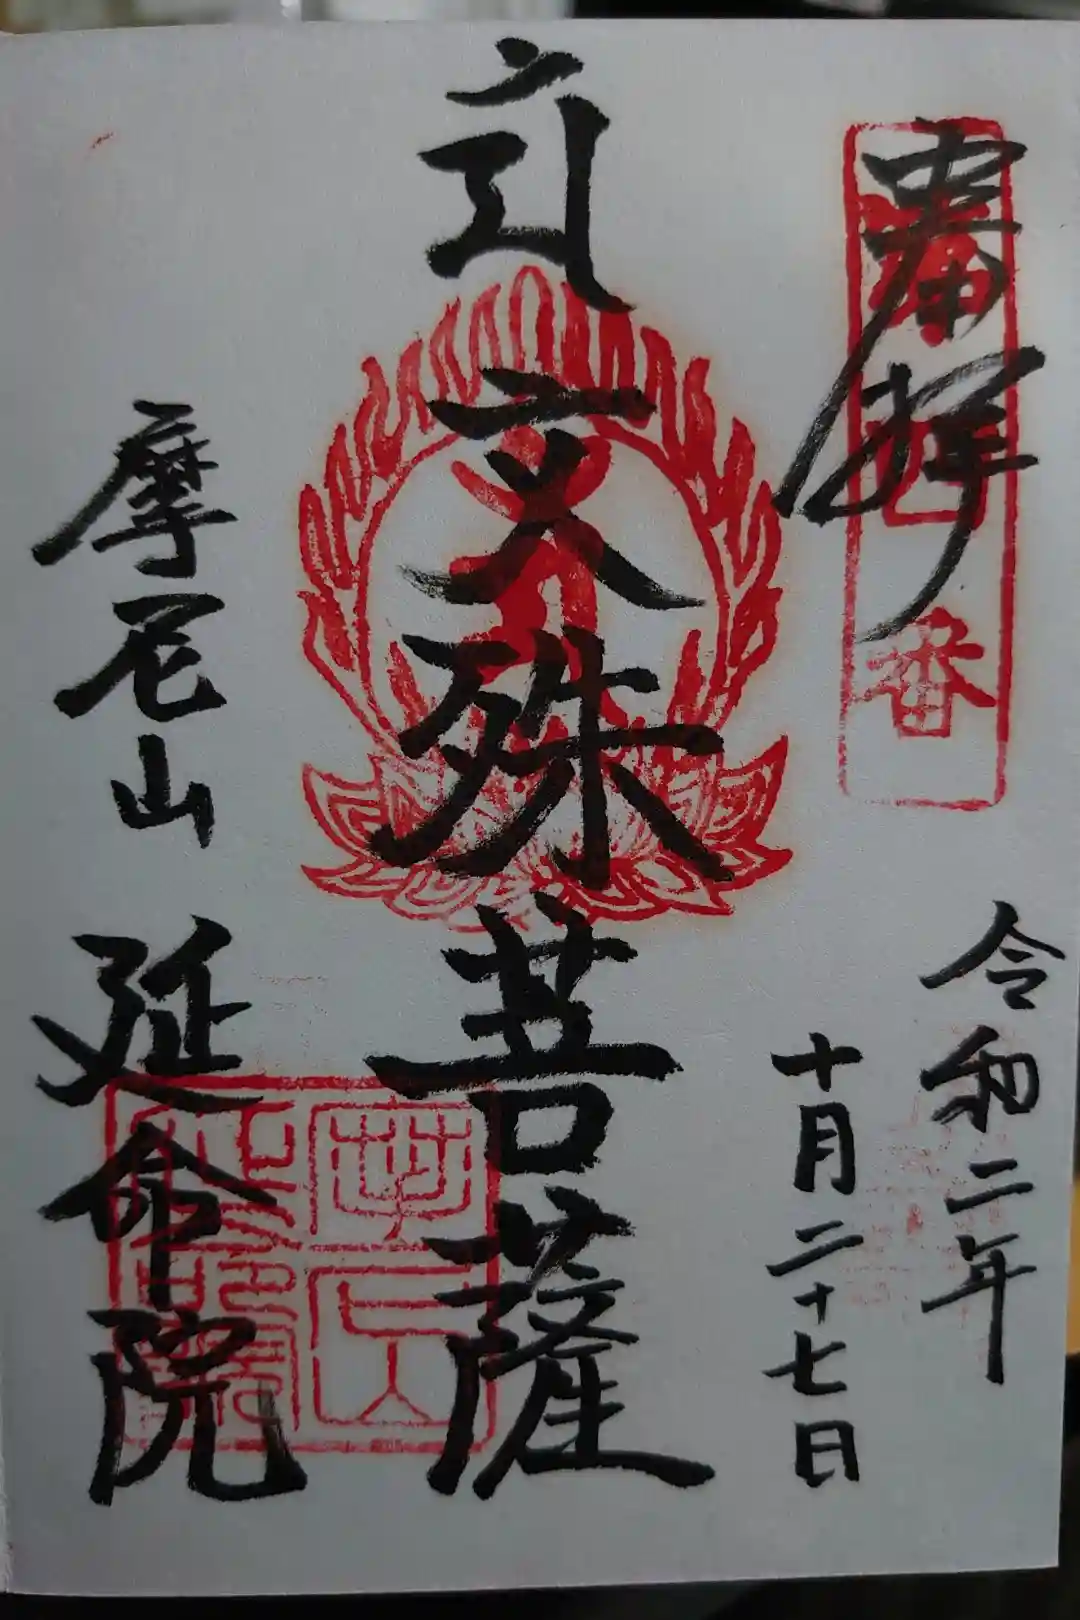 奉拝
番
令和二年
十月二十七日
文殊菩薩
摩尼山
延命院